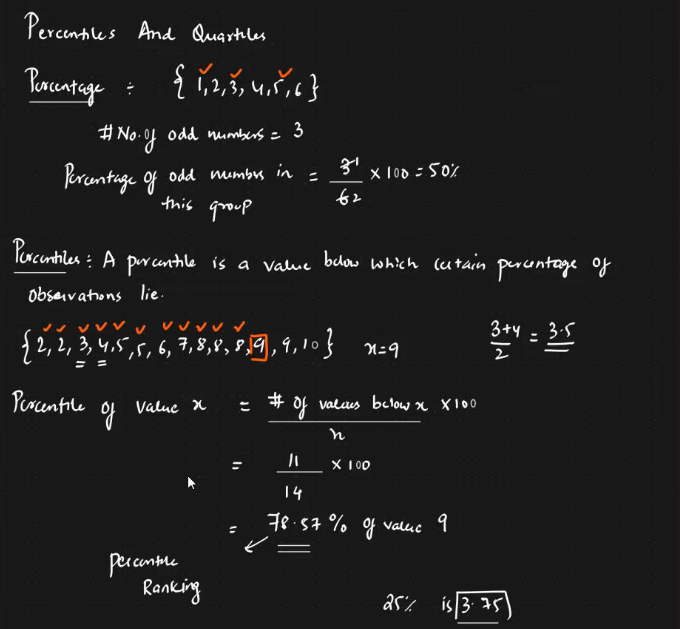 Percentiles And Quartiles
Percentage : { 1, 2, 3, 4, 5, 6 }
# No. of odd numbers = 3
Percentage of odd numbers in this group = 3 1 / 6 2 × 100 = 50%
Percentiles : A percentile is a value below which certain percentage of
observations lie.
{ 2, 2, 3, 4, 5, 5, 6, 7, 8, 8, 8, 9, 9, 10 } x = 9
3+4 / 2 = 3.5
Percentile of value x = # of values below x / n × 100
= 11 / 14 × 100
= 78.57 % of value 9
Percentile
Ranking
25% is 3.75